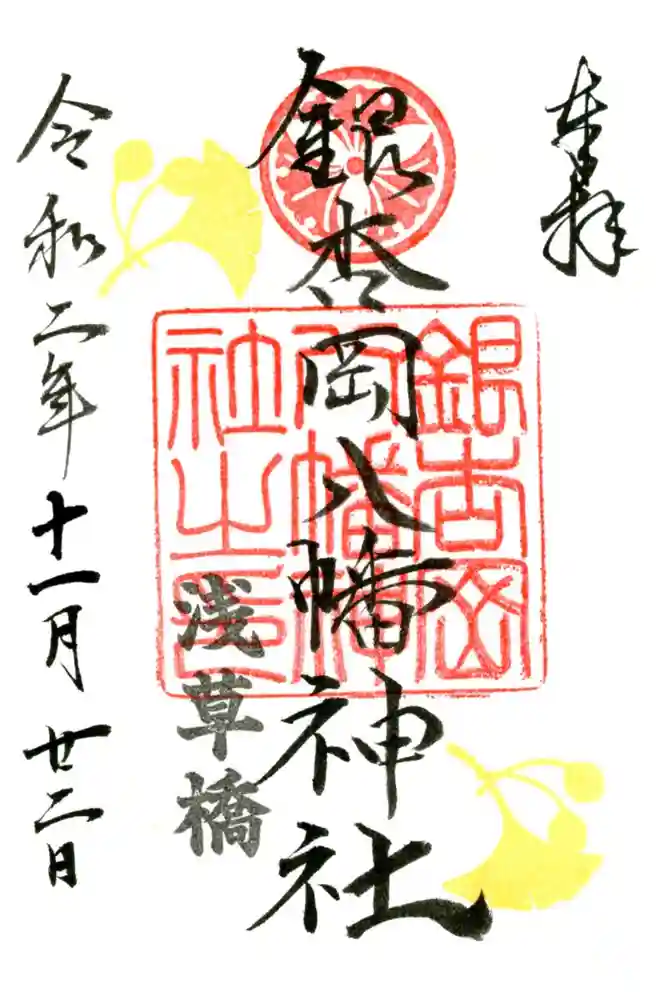 奉拝
銀杏岡八幡神社
銀杏岡八幡神社之印
浅草橋
令和二年十一月廿二日